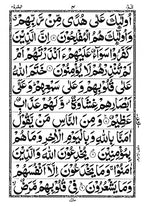 الٓمّٓ ١ ٣ البقرة ٢
اُولٰٓئِكَ عَلٰى هُدًى مِّنْ رَّبِّهِمْ ۗ
وَاُولٰٓئِكَ هُمُ الْمُفْلِحُوْنَ ۝ اِنَّ الَّذِيْنَ
كَفَرُوْا سَوَآءٌ عَلَيْهِمْ ءَاَنْذَرْتَهُمْ اَمْ لَمْ
تُنْذِرْهُمْ لَا يُؤْمِنُوْنَ ۝ خَتَمَ اللّٰهُ
عَلٰى قُلُوْبِهِمْ وَعَلٰى سَمْعِهِمْ ؕ وَعَلٰٓى
اَبْصَارِهِمْ غِشَاوَةٌ وَّلَهُمْ عَذَابٌ
عَظِيْمٌ ۝ وَمِنَ النَّاسِ مَنْ يَّقُوْلُ
اٰمَنَّا بِاللّٰهِ وَبِالْيَوْمِ الْاٰخِرِ وَمَا هُمْ
بِمُؤْمِنِيْنَ ۝ يُخٰدِعُوْنَ اللّٰهَ وَالَّذِيْنَ
اٰمَنُوْا وَمَا يَخْدَعُوْنَ اِلَّآ اَنْفُسَهُمْ
وَمَا يَشْعُرُوْنَ ۝ فِيْ قُلُوْبِهِمْ مَّرَضٌ